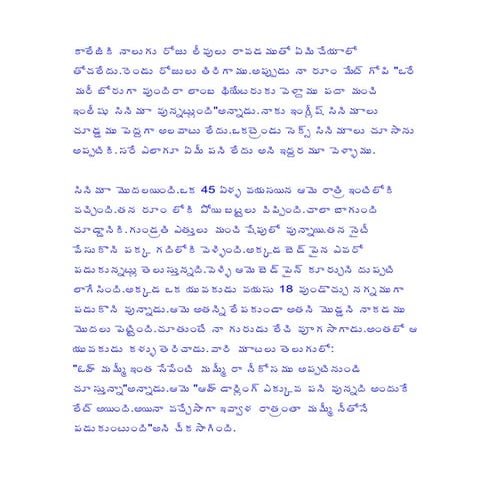 కాలేజికి నాలుగు రోజు లీవులు రావడముతో ఏమి చేయాలో
తోచలేదు.రెండు రోజులు తిరిగాము.అప్పుడు నా రూం మేట్ గోపి "ఒరే
మరీ బోరుగా వుందిరా లాంబ థియేటరుకు వెళ్దాము పదా మంచి
ఇంలీషు సినిమా వున్నట్లుంది"అన్నాడు.నాకు ఇంగ్లీష్ సినిమాలు
చూడ్డము పెద్దగా అలవాటు లేదు.ఒకట్రెండు సెక్స్ సినిమాలు చూసాను
అప్పటికి.సరే ఎలాగూ ఏమీ పని లేదు అని ఇద్దరమూ వెళ్ళాము.

సినిమా మొదలయింది.ఒక 45 ఏళ్ళ వయసయిన ఆమె రాత్రి ఇంటిలోకి
వచ్చింది.తన రూం లోకి పోయి బట్టలు విప్పింది.చాలా బాగుంది
చూడ్డానికి.గుండ్రతి ఎత్తులు మంచి షేపులో వున్నాయి.తన నైటీ
వేసుకొని పక్క గదిలోకి వెళ్ళింది.అక్కడ బెడ్ పైన ఎవరో
పడుకున్నట్లు తెలుస్తున్నది.వెళ్ళి ఆమె బెడ్ పైన్ కూర్చుని దుప్పటి
లాగేసింది.అక్కడ ఒక యువకుడు వయసు 18 వుండొచ్చు నగ్నముగా
పడుకొని వున్నాడు.ఆమె అతన్ని లేపకుండా అతని మొడ్డని నాకడము
మొదలు పెట్టింది.చూతుంటే నా గురుడు లేచి వూగసాగాడు.అంతలో ఆ
యువకుడు కళ్ళు తెరిచాడు.వారి మాటలు తెలుగులో:
"ఓహ్ మమ్మీ ఇంత సేపేంటి మమ్మీ రా నీకోసము అప్పటినుండి
చూస్తున్నా"అన్నాడు.ఆమె "ఆహ్ డార్లింగ్ ఎక్కువ పని వున్నది అందుకే
లేట్ అయింది.అయినా వచ్చేసాగా ఇవ్వాళ రాత్రంతా మమ్మీ నీతోనే
పడుకుంటుంది"అని చీకసాగింది.